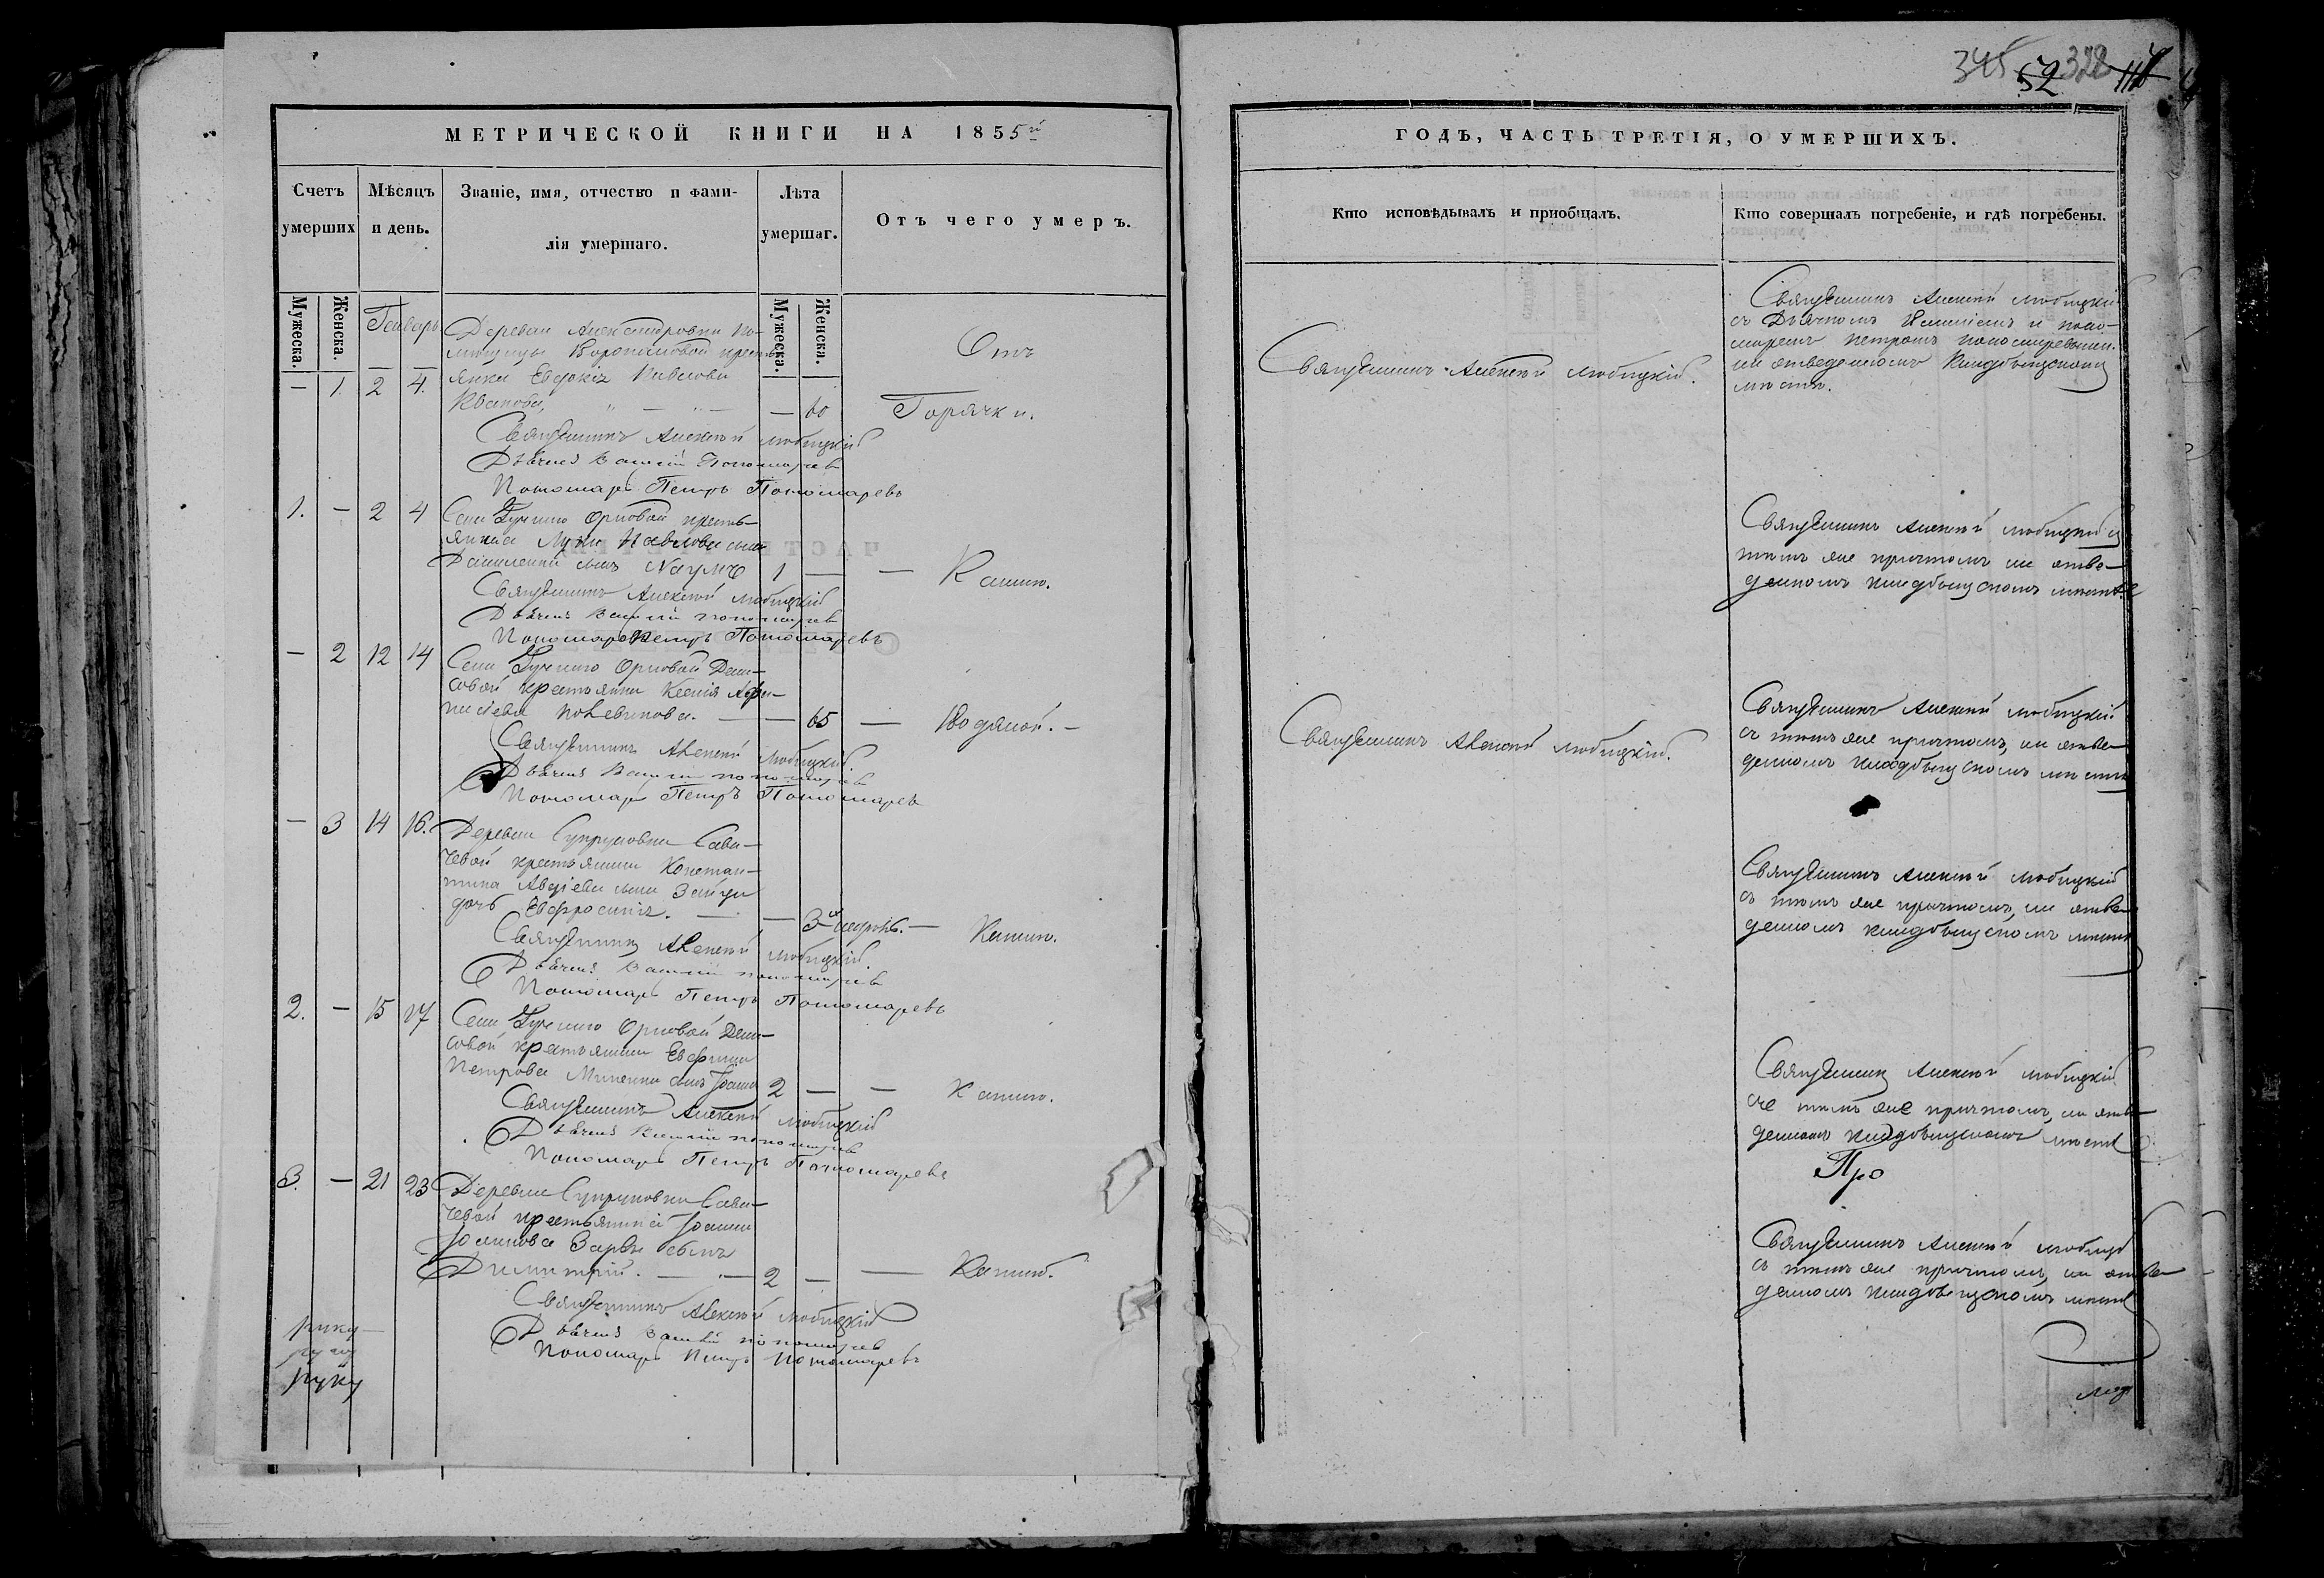 МЕТРИЧЕСКОЙ КНИГИ НА 1855й
Счетъ умерших
Мѣсяцъ и день.
Званіе, имя, отчество и фами-
лія умершаго.
Лѣта умершаг.
Отъ чего умеръ.
Мужеска.
Женска.
Мужеска.
Женска.
Генварь
Деревни Александровки по-
мещицы кресть-
янка Евдокія
Иванова, — 60
Отъ
Горячки.
— 1. 2 4.
Священникъ Алексѣй Любицкій
Дьячекъ Василій Пономаревъ
Пономарь Петръ Пономаревъ
1. — 2 4
Села Орловой кресть-
янина Луки Павлова сына
сынъ Наумъ 1 — — Кашлю.
Священникъ Алексѣй Любицкій
Дьячекъ Василій Пономаревъ
Пономарь Петръ Пономаревъ
— 2 12 14
Села Орловой Дени-
совой крестьянка Ксенія
— — 65 — Водяной. —
Священникъ Алексѣй Любицкій.
Дьячекъ Василій Пономаревъ
Пономарь Петръ Пономаревъ
— 3 14 16.
Деревни Супруновки Сави-
чевой крестьянина Констан-
тина Авдіева сына Зайца
дочь Евфросинія. — — 3х недѣль. — Кашлю.
Священникъ Алексѣй Любицкій.
Дьячекъ Василій Пономаревъ
Пономарь Петръ Пономаревъ
2. — 15 17
Села Орловой Дени-
совой крестьянина
Петрова сынъ Іоаннъ 2 — — Кашлю.
Священникъ Алексѣй Любицкій
Дьячекъ Василій Пономаревъ
Пономарь Петръ Пономаревъ
3. — 21 23
Деревни Супруновки Сави-
чевой крестьянина Іоанна
Іоаннова сынъ
Димитрій. — — 2 — — Кашлю.
Священникъ Алексѣй Любицкій
Дьячекъ Василій Пономаревъ
Пономарь Петръ Пономаревъ
руку
руку
345 52 328
ГОДЪ, ЧАСТЬ ТРЕТІЯ, О УМЕРШИХЪ.
Кто исповѣдывалъ и пріобщалъ.
Кто совершалъ погребеніе, и гдѣ погребены.
Священникъ Алексѣй Любицкій.
Священникъ Алексѣй Любицкій
съ Дьячкомъ Василіемъ и поно-
маремъ Петромъ Пономаревыми
на отведенномъ кладбищскомъ
мѣстѣ.
Священникъ Алексѣй Любицкій съ
тѣмъ же причтомъ на отве-
денномъ кладбищскомъ мѣстѣ
Священникъ Алексѣй Любицкій.
Священникъ Алексѣй Любицкій
съ тѣмъ же причтомъ, на отве-
денномъ кладбищскомъ мѣстѣ
Священникъ Алексѣй Любицкій
съ тѣмъ же причтомъ, на отве-
денномъ кладбищскомъ мѣстѣ
Священникъ Алексѣй Любицкій
съ тѣмъ же причтомъ, на отве-
денномъ кладбищскомъ мѣстѣ
Про
Священникъ Алексѣй Любиц
съ тѣмъ же причтомъ, на отве-
денномъ кладбищскомъ мѣстѣ